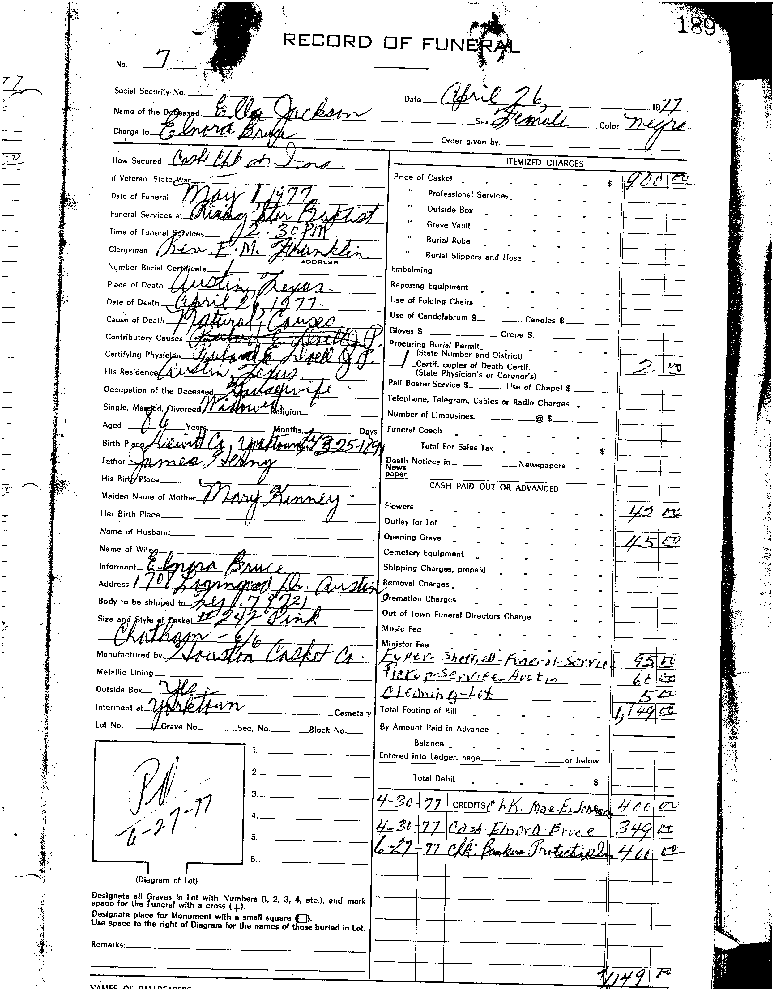 189
RECORD OF FUNERAL
No. 7
Social Security No.
Date April 26 1977
Name of the Deceased Ella Jackson Sex Female Color Negro
Charge to Elnora Bruce Order given by
How Secured Cash Chk or Ins
If Veteran State War
Date of Funeral May 1, 1977
Funeral Services at Rising Star Baptist
Time of Funeral Services 2:30 PM
Clergyman Rev. E. M. Franklin
ADDRESS
Number Burial Certificate
Place of Death Austin, Texas
Date of Death April 1977
Cause of Death Natural Causes
Contributory Causes
Certifying Physician J.P.
His Residence Austin, Texas
Occupation of the Deceased Housewife
Single, Married, Divorced Widowed Religion
Aged 86 Years Months Days
Birth Place Yorktown
Father James
His Birth Place
Maiden Name of Mother Mary Kinney
Her Birth Place
Name of Husband
Name of Wife
Informant Elnora Bruce
Address 1701 Dr. Austin
Body to be shipped to
Size and Style of Casket # 242 Pink
Chatham - 6/6
Manufactured by Houston Casket Co.
Metallic Lining
Outside Box Yes
Interment at Yorktown Cemetery
Lot No. Grave No. Sec. No. Block No.
Pd
6-27-77
1.
2.
3.
4.
5.
6.
(Diagram of Lot)
Designate all Graves in Lot with Numbers (1, 2, 3, 4, etc.), and mark
space for the Funeral with a cross (+).
Designate place for Monument with a small square (□).
Use space to the right of Diagram for the names of those buried in Lot.
Remarks:
NAMES OF PALLBEARERS
ITEMIZED CHARGES
Price of Casket $ 900 00
" Professional Services
" Outside Box
" Grave Vault
" Burial Robe
" Burial Slippers and Hose
Embalming
Reposing Equipment
Use of Folding Chairs
Use of Candelabrum $ Candles $
Gloves $ Crepe $
Procuring Burial Permit
(State Number and District)
1 Certif. copies of Death Certif. 2 00
(State Physician's or Coroner's)
Pall Bearer Service $ Use of Chapel $
Telephone, Telegram, Cables or Radio Charges
Number of Limousines @ $
Funeral Coach
Total For Sales Tax $
Death Notices in Newspapers
News
paper
CASH PAID OUT OR ADVANCED
Flowers 42 00
Outlay for Lot
Opening Grave 45 00
Cemetery Equipment
Shipping Charges, prepaid
Removal Charges
Cremation Charges
Out of Town Funeral Directors Charge
Music Fee
Minister Fee
Funeral-Service 95 00
Pickup-Service-Austin 60 00
Cleaning-Lot 5 00
Total Footing of Bill 1,149 00
By Amount Paid in Advance
Balance
Entered into Ledger, page or below
Total Debit $
4-30-77 CREDITS Chk. Mae E. Johnson 400 00
4-30-77 Cash Elnora Bruce 349 00
6-27-77 Chk. Bankers Protective 400 00
1149 00